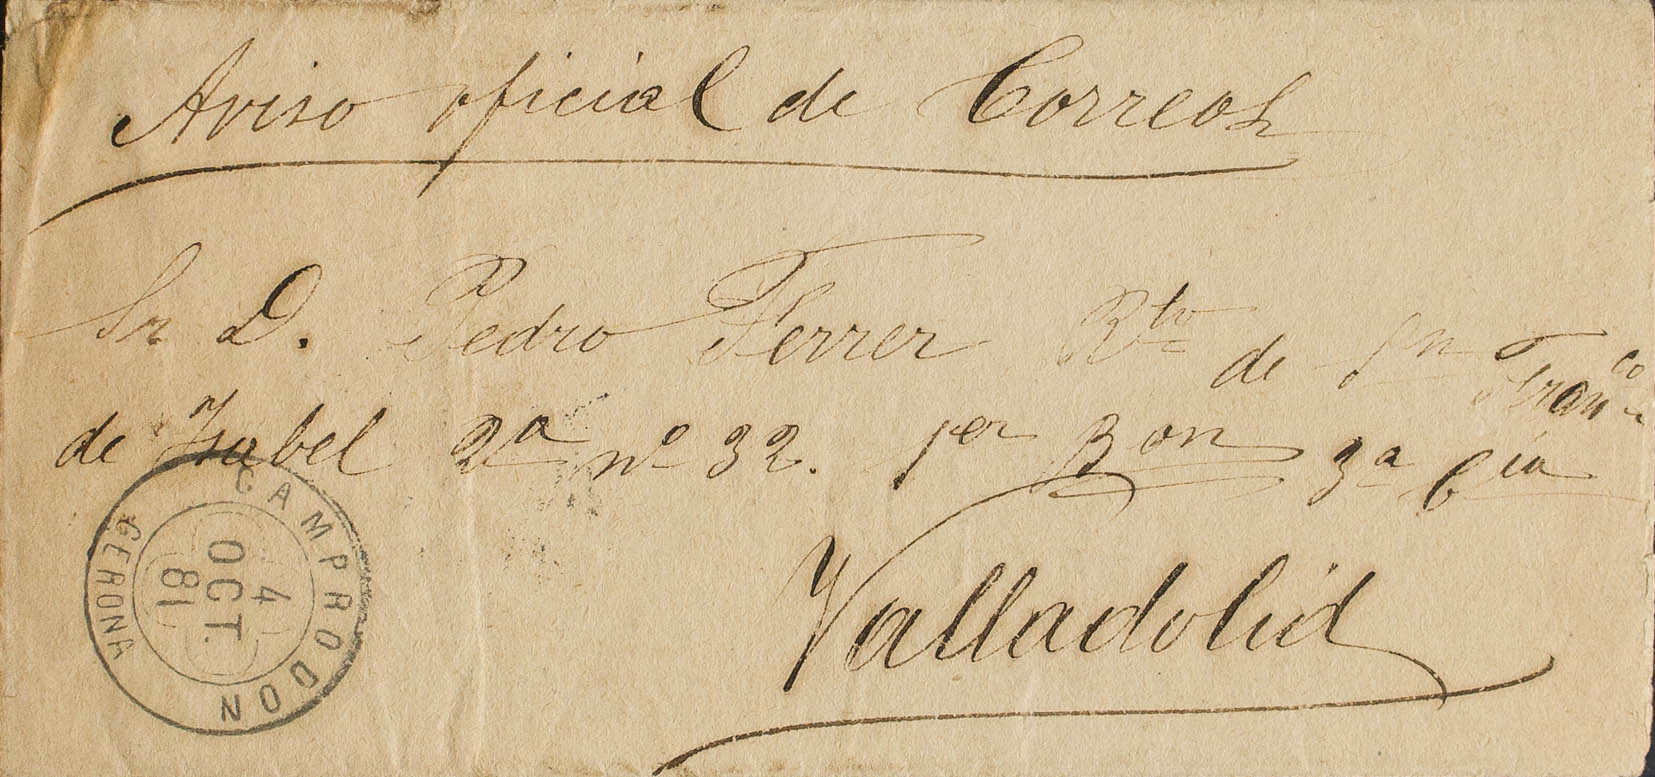 Aviso oficial de Correos
Sr D. Pedro Ferrer Rto de Sn Franco
de Isabel 2a no 32. 1er Bon 3a Cía
Valladolid
CAMPRODON
4
OCT.
81
GERONA